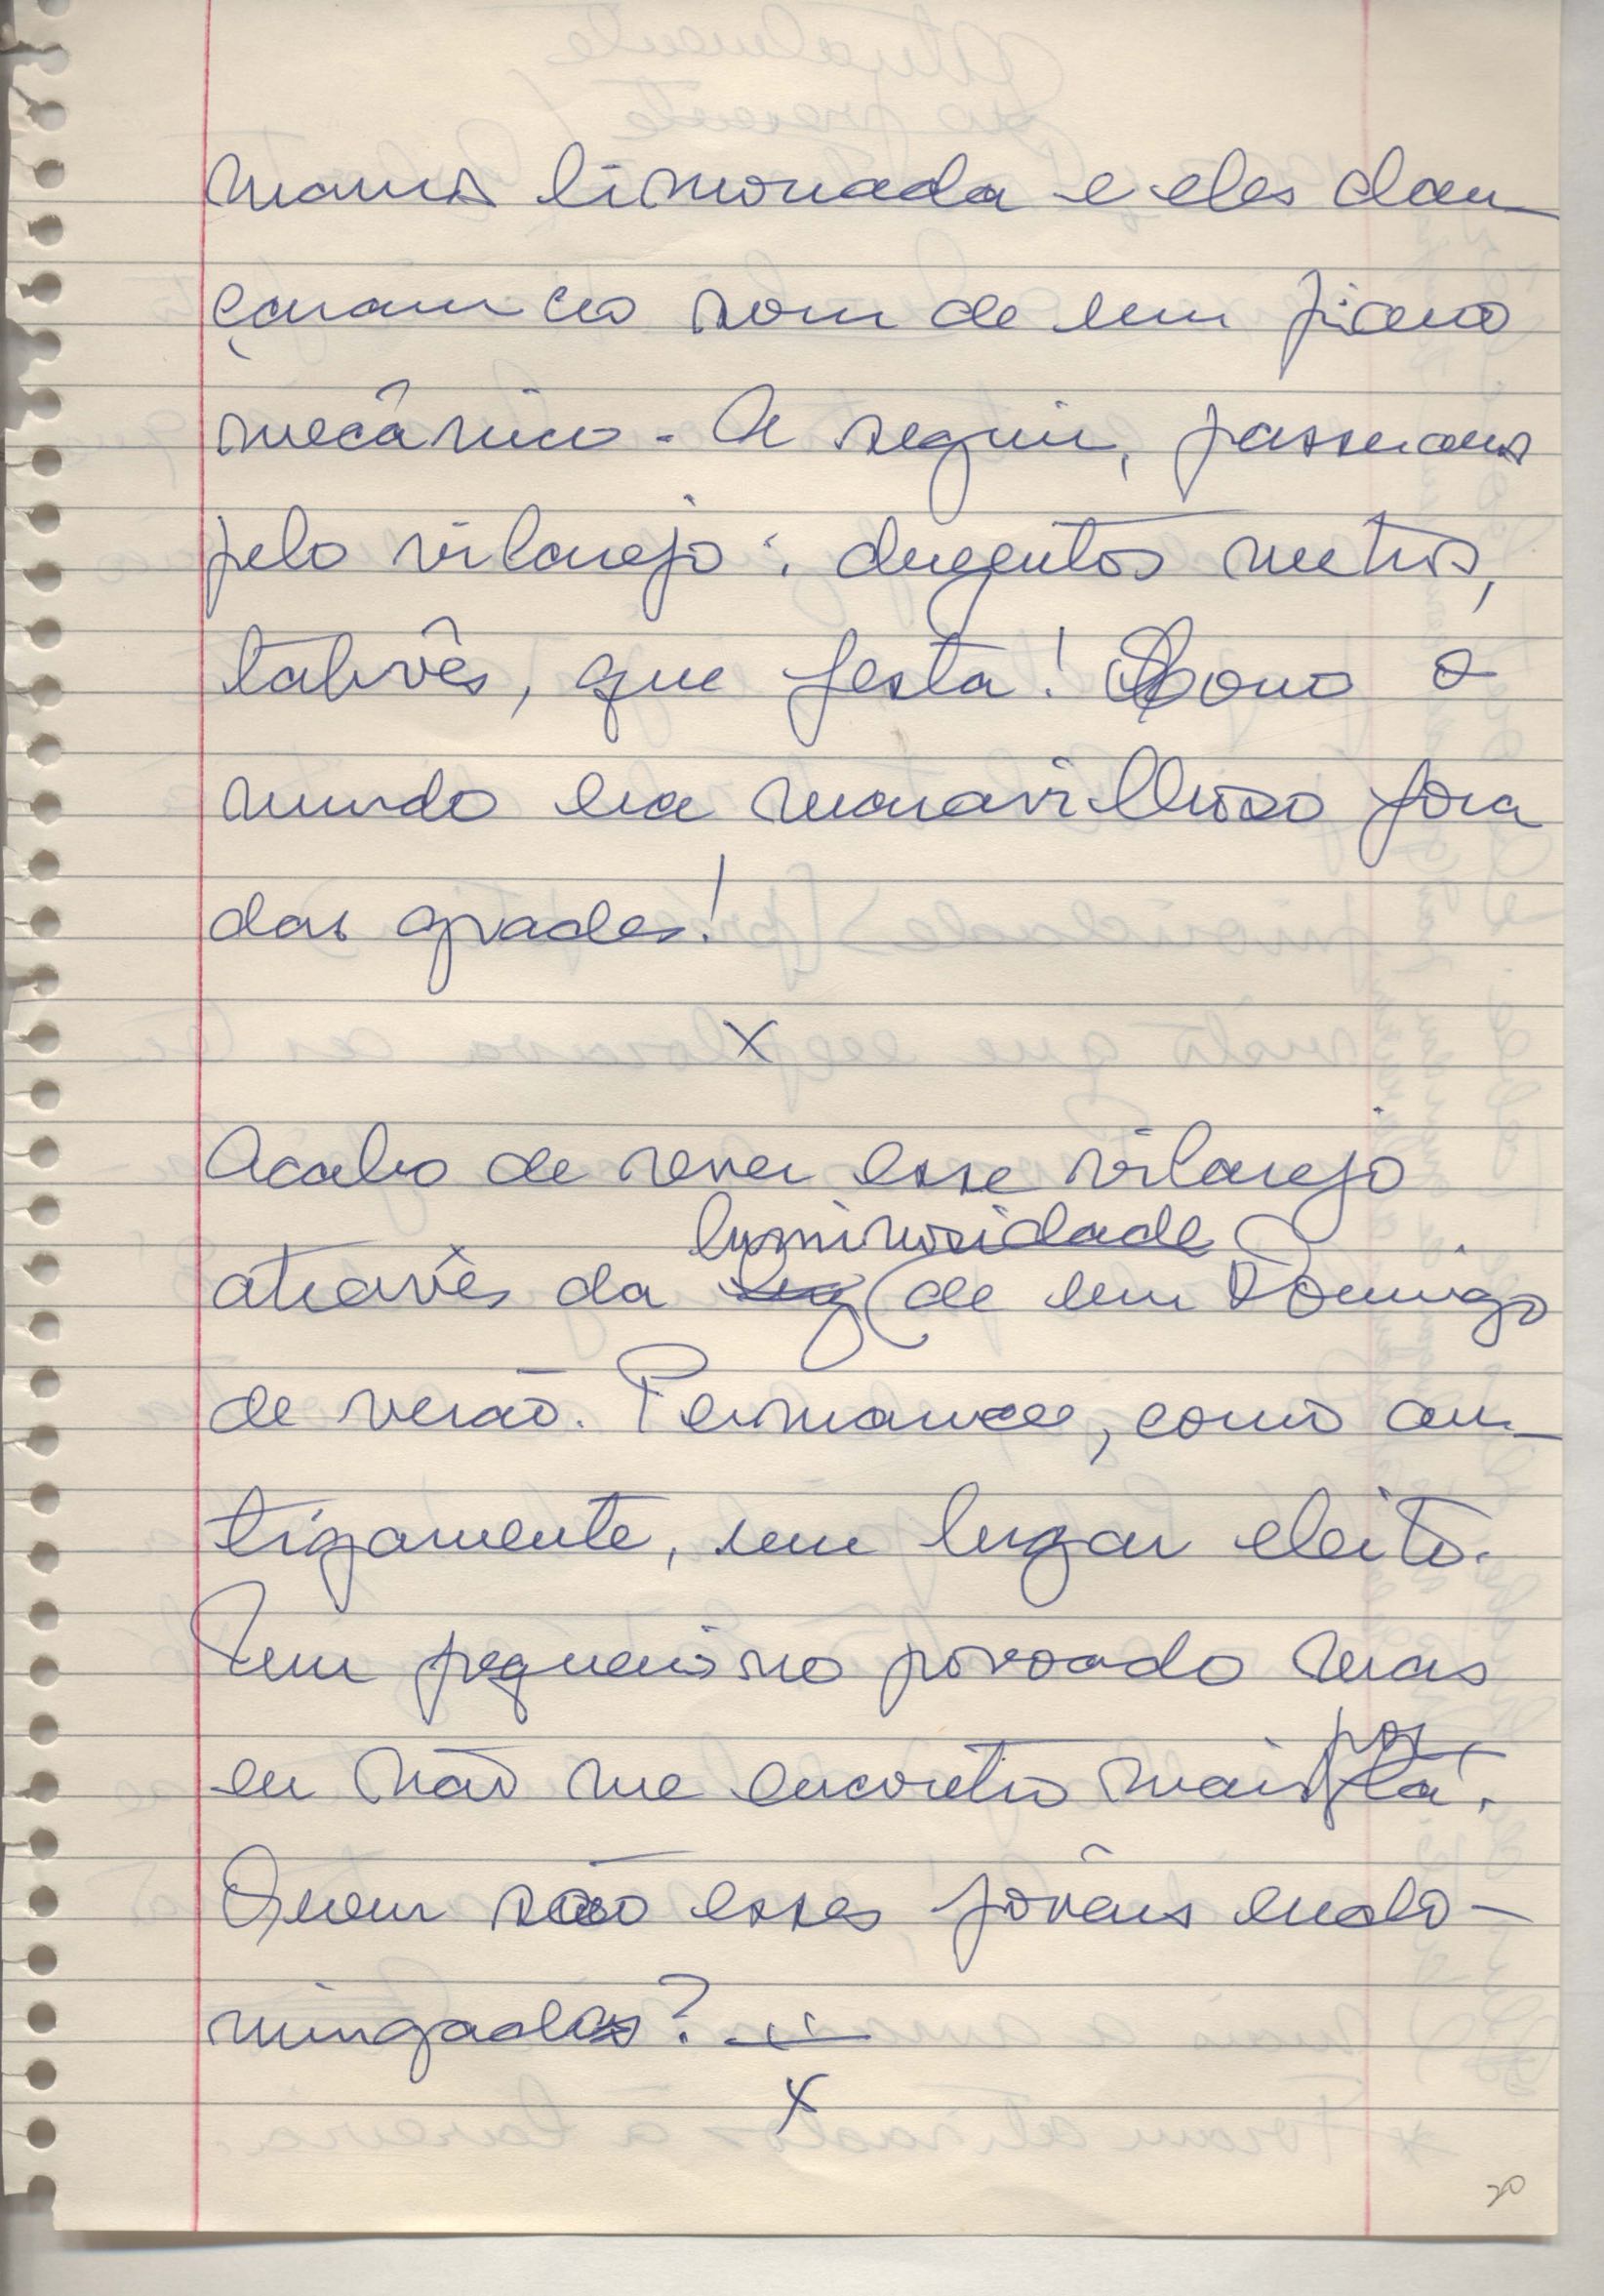 mamos limonada e eles dan-
çaram ao som de um piano
mecânico. A seguir, passeamos
pelo vilarejo: duzentos metros,
talvês, que festa! Como o
mundo era maravilhoso fora
das grades!
x
Acabo de rever esse vilarejo
luminosidade
através da luz de um Domingo
de verão. Permanece, como an-
tigamente, um lugar eleito.
Um pequenino povoado mas
por
eu não me encontro mais lá.
Quem são esses jovêns endo-
mingados? ...
x
20